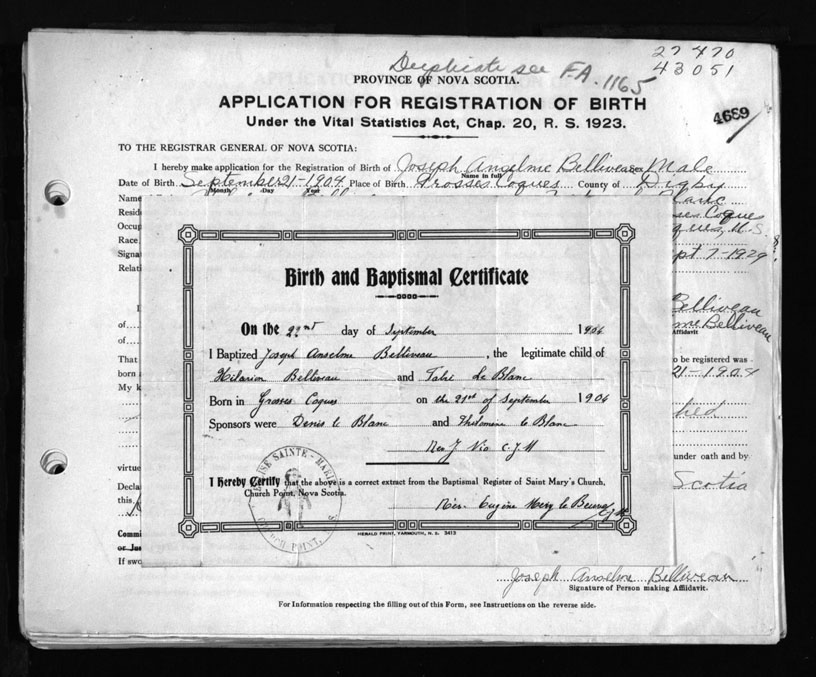 Duplicate see F.A. 1165
27 470
43 051
4689
PROVINCE OF NOVA SCOTIA.
APPLICATION FOR REGISTRATION OF BIRTH
Under the Vital Statistics Act, Chap. 20, R. S. 1923.
TO THE REGISTRAR GENERAL OF NOVA SCOTIA:
I hereby make application for the Registration of Birth of Joseph Anselme Belliveau Sex Male
Name in full
Date of Birth September 21-1904 Place of Birth Grosses Coques County of Digby
Month Day Year
Name
Resid
Occup
Race
Signa
Relati
Blanc
Coques
N.S.
Sept 7-1929
Belliveau
Belliveau
Affidavit
of
of
That
to be registered was
born
21-1904
My k
under oath and by
virtue
Scotia
Decla
this
Commi
or Jus
If swo
Birth and Baptismal Certificate
On the 22nd day of September 1904
I Baptized Joseph Anselme Belliveau, the legitimate child of
Hilarion Belliveau and Le Blanc
Born in Grosses Coques on the 21st of September 1904
Sponsors were Denis le Blanc and Philomene le Blanc
Rev J
I Hereby Certify that the above is a correct extract from the Baptismal Register of Saint Mary's Church,
Church Point, Nova Scotia.
SAINTE-MARI
CHURCH POINT, N.S.
HERALD PRINT, YARMOUTH, N. S. 2413
Joseph Anselme Belliveau
Signature of Person making Affidavit.
For Information respecting the filling out of this Form, see Instructions on the reverse side.